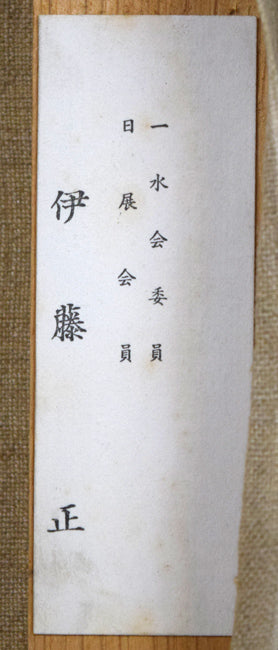 一水会委員
日展会員
伊藤正